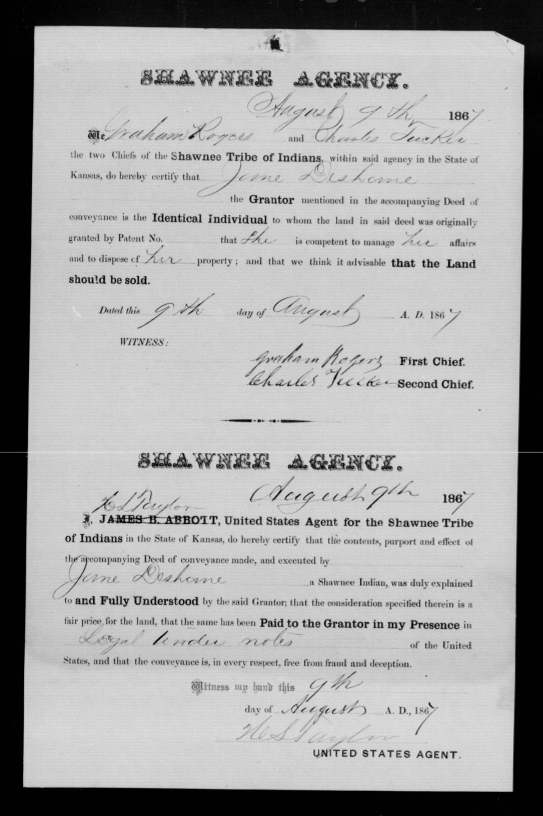 SHAWNEE AGENCY.
August 9th 1867
We Graham Rogers and Charles Tucker
the two Chiefs of the Shawnee Tribe of Indians, within said agency in the State of
Kansas, do hereby certify that Jane Deshane
the Grantor mentioned in the accompanying Deed of
conveyance is the Identical Individual to whom the land in said deed was originally
granted by Patent No. that She is competent to manage her affairs
and to dispose of her property; and that we think it advisable that the Land
should be sold.
Dated this 9th day of August A. D. 1867
WITNESS:
Graham Rogers First Chief.
Charles Tucker Second Chief.
SHAWNEE AGENCY.
August 9th 1867
H L Taylor
I, JAMES B. ABBOTT, United States Agent for the Shawnee Tribe
of Indians in the State of Kansas, do hereby certify that the contents, purport and effect of
the accompanying Deed of conveyance made, and executed by
Jane Deshane a Shawnee Indian, was duly explained
to and Fully Understood by the said Grantor; that the consideration specified therein is a
fair price for the land, that the same has been Paid to the Grantor in my Presence in
Legal tender notes of the United
States, and that the conveyance is, in every respect, free from fraud and deception.
Witness my hand this 9th
day of August A. D., 1867
H L Taylor
UNITED STATES AGENT.